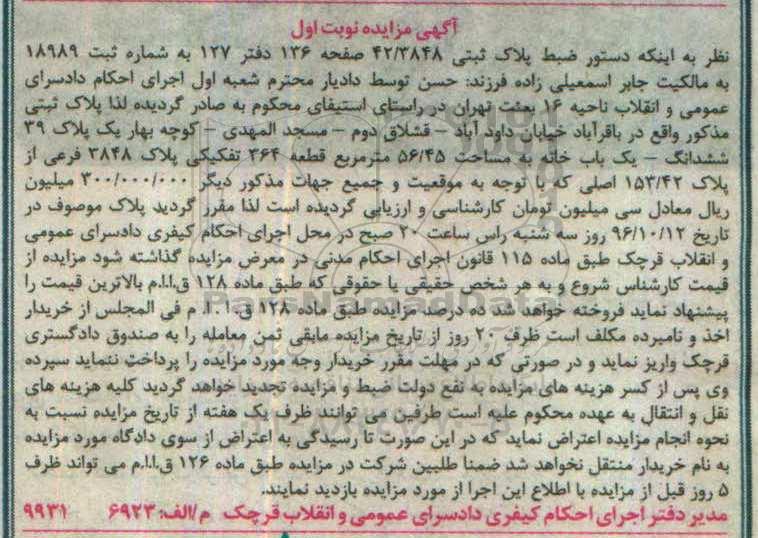 آگهی مزایده نوبت اول
نظر به اینکه دستور ضبط پلاک ثبتی ۴۲/۳۸۴۸ صفحه ۱۳۶ دفتر ۱۲۷ به شماره ثبت ۱۸۹۸۹
به مالکیت جابر اسمعیلی زاده فرزند: حسن توسط دادیار محترم شعبه اول اجرای احکام دادسرای
عمومی و انقلاب ناحیه ۱۶ بعثت تهران در راستای استیفای محکوم به صادر گردیده لذا پلاک ثبتی
مذکور واقع در باقرآباد خیابان داود آباد – قشلاق دوم – مسجد المهدی – کوچه بهار یک پلاک ۳۹
ششدانگ – یک باب خانه به مساحت ۵۶/۴۵ مترمربع قطعه ۳۶۴ تفکیکی پلاک ۳۸۴۸ فرعی از
پلاک ۱۵۳/۴۲ اصلی که با توجه به موقعیت و جمیع جهات مذکور دیگر ۳۰۰/۰۰۰/۰۰۰ میلیون
ریال معادل سی میلیون تومان کارشناسی و ارزیابی گردیده است لذا مقرر گردید پلاک موصوف در
تاریخ ۹۶/۱۰/۱۲ روز سه شنبه راس ساعت ۲۰ صبح در محل اجرای احکام کیفری دادسرای عمومی
و انقلاب قرچک طبق ماده ۱۱۵ قانون اجرای احکام مدنی در معرض مزایده گذاشته شود مزایده از
قیمت کارشناس شروع و به هر شخص حقیقی یا حقوقی که طبق ماده ۱۲۸ ق.ا.ا.م بالاترین قیمت را
پیشنهاد نماید فروخته خواهد شد ده درصد مزایده طبق ماده ۱۲۸ ق.ا.ا.م فی المجلس از خریدار
اخذ و نامبرده مکلف است ظرف ۲۰ روز از تاریخ مزایده مابقی ثمن معامله را به صندوق دادگستری
قرچک واریز نماید و در صورتی که در مهلت مقرر خریدار وجه مورد مزایده را پرداخت ننماید سپرده
وی پس از کسر هزینه های مزایده به نفع دولت ضبط و مزایده تجدید خواهد گردید کلیه هزینه های
نقل و انتقال به عهده محکوم علیه است طرفین می توانند ظرف یک هفته از تاریخ مزایده نسبت به
نحوه انجام مزایده اعتراض نماید که در این صورت تا رسیدگی به اعتراض از سوی دادگاه مورد مزایده
به نام خریدار منتقل نخواهد شد ضمنا طلبین شرکت در مزایده طبق ماده ۱۲۶ ق.ا.ا.م می تواند ظرف
۵ روز قبل از مزایده با اطلاع این اجرا از مورد مزایده بازدید نمایند.
مدیر دفتر اجرای احکام کیفری دادسرای عمومی و انقلاب قرچک م/الف: ۶۹۲۳ ۹۹۳۱
ParsNamadData